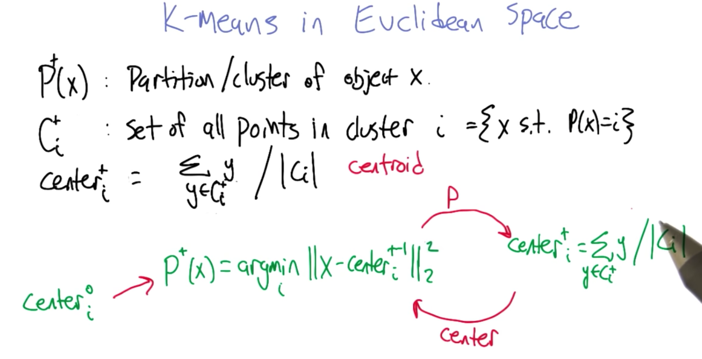 K-Means in Euclidean Space
Pᵗ(x) : Partition/cluster of object x.
Cᵢᵗ : set of all points in cluster i = {x s.t. P(x)=i}
centerᵢᵗ = Σ_{y∈Cᵢᵗ} y / |Cᵢ| centroid
P
Pᵗ(x) = argminᵢ ||x - centerᵢᵗ⁻¹||₂²
centerᵢᵗ = Σ_{y∈Cᵢᵗ} y / |Cᵢ|
centerᵢ⁰
center